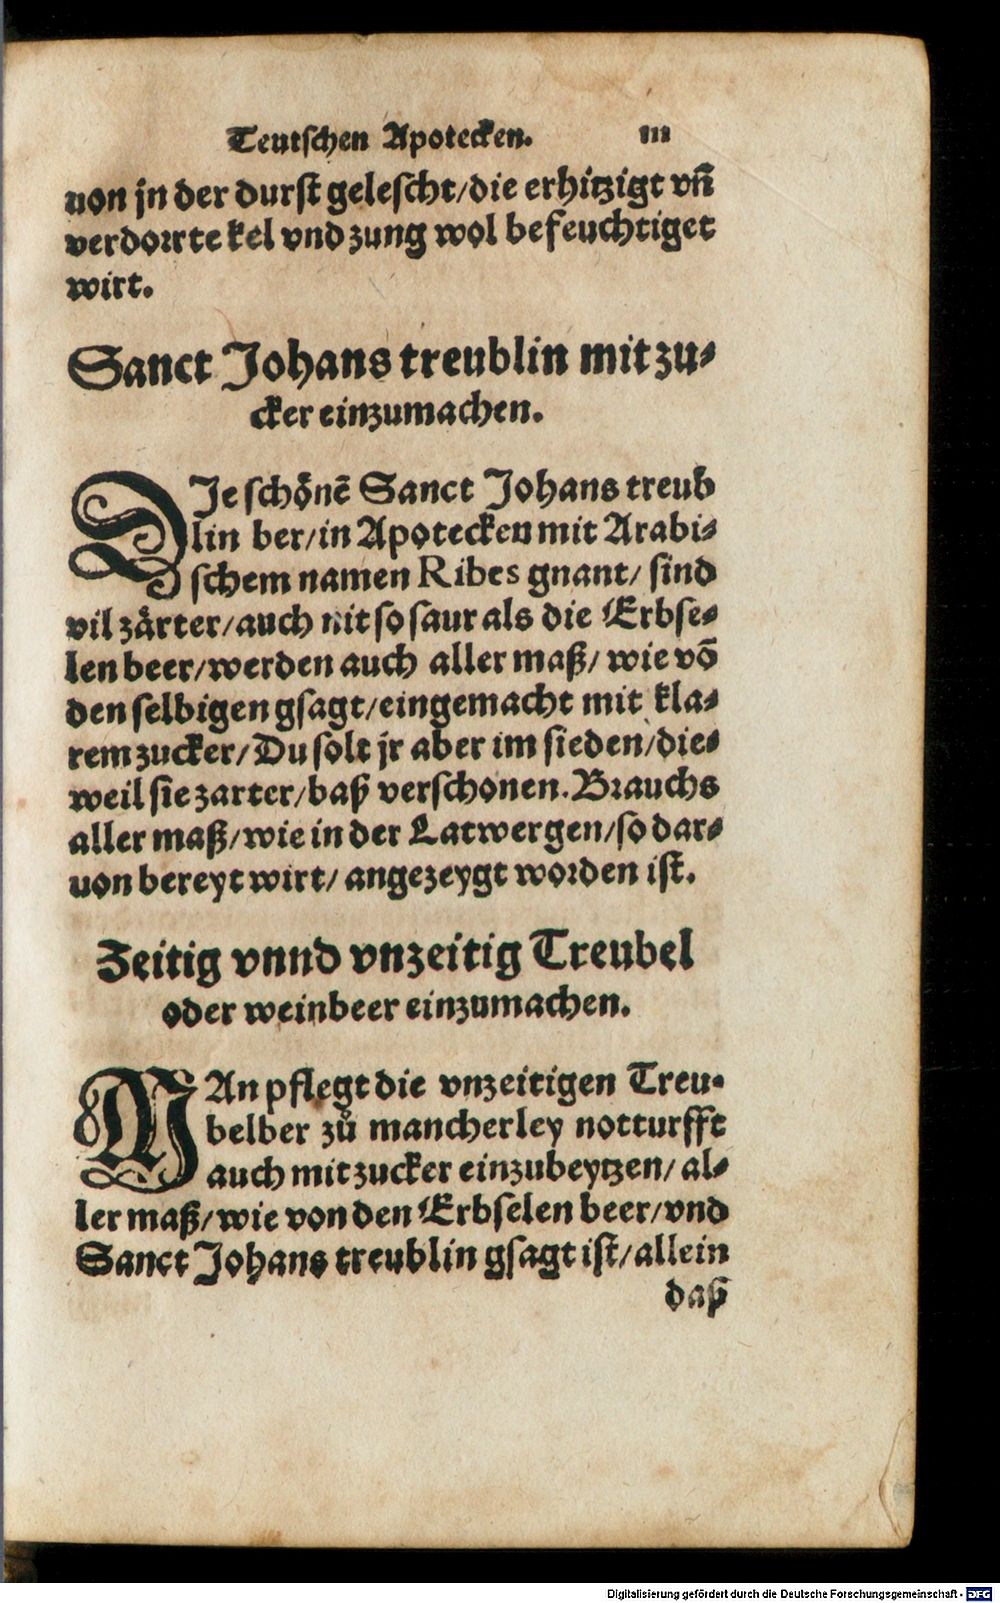 Teutschen Apotecken. III
von jn der durst gelescht/die erhitzigt vñ
verdorrte kel vnd zung wol befeuchtiget
wirt.
Sanct Johans treublin mit zu-
cker einzumachen.
DJe schönẽ Sanct Johans treub
lin ber/in Apotecken mit Arabi-
schem namen Ribes gnant/ sind
vil zärter/auch nit so saur als die Erbse-
len beer/werden auch aller maß/ wie võ
den selbigen gsagt/eingemacht mit kla-
rem zucker/Du solt jr aber im sieden/die-
weil sie zarter/baß verschonen. Brauchs
aller maß/wie in der Latwergen/so dar-
von bereyt wirt/ angezeygt worden ist.
Zeitig vnnd vnzeitig Treubel
oder weinbeer einzumachen.
MAn pflegt die vnzeitigen Treu-
belber zů mancherley notturfft
auch mit zucker einzubeytzen/ al-
ler maß/wie von den Erbselen beer/vnd
Sanct Johans treublin gsagt ist/allein
daß
Digitalisierung gefördert durch die Deutsche Forschungsgemeinschaft - DFG